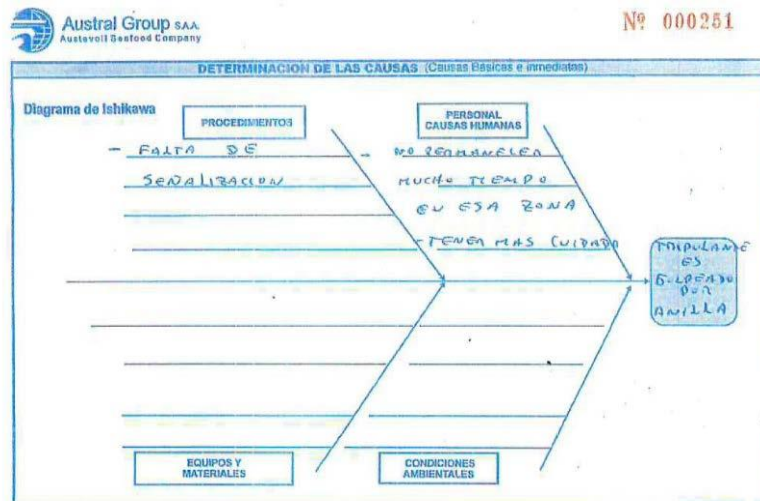 Austral Group S.A.A.
Austevoll Seafood Company
Nº 000251
DETERMINACION DE LAS CAUSAS (Causas Básicas e inmediatas)
Diagrama de Ishikawa
PROCEDIMIENTOS
- FALTA DE
SEÑALIZACION
PERSONAL
CAUSAS HUMANAS
- NO PERMANECER
MUCHO TIEMPO
EN ESA ZONA
- TENER MAS CUIDADO
TRIPULANTE
ES
GOLPEADO
POR
ANILLA
EQUIPOS Y
MATERIALES
CONDICIONES
AMBIENTALES